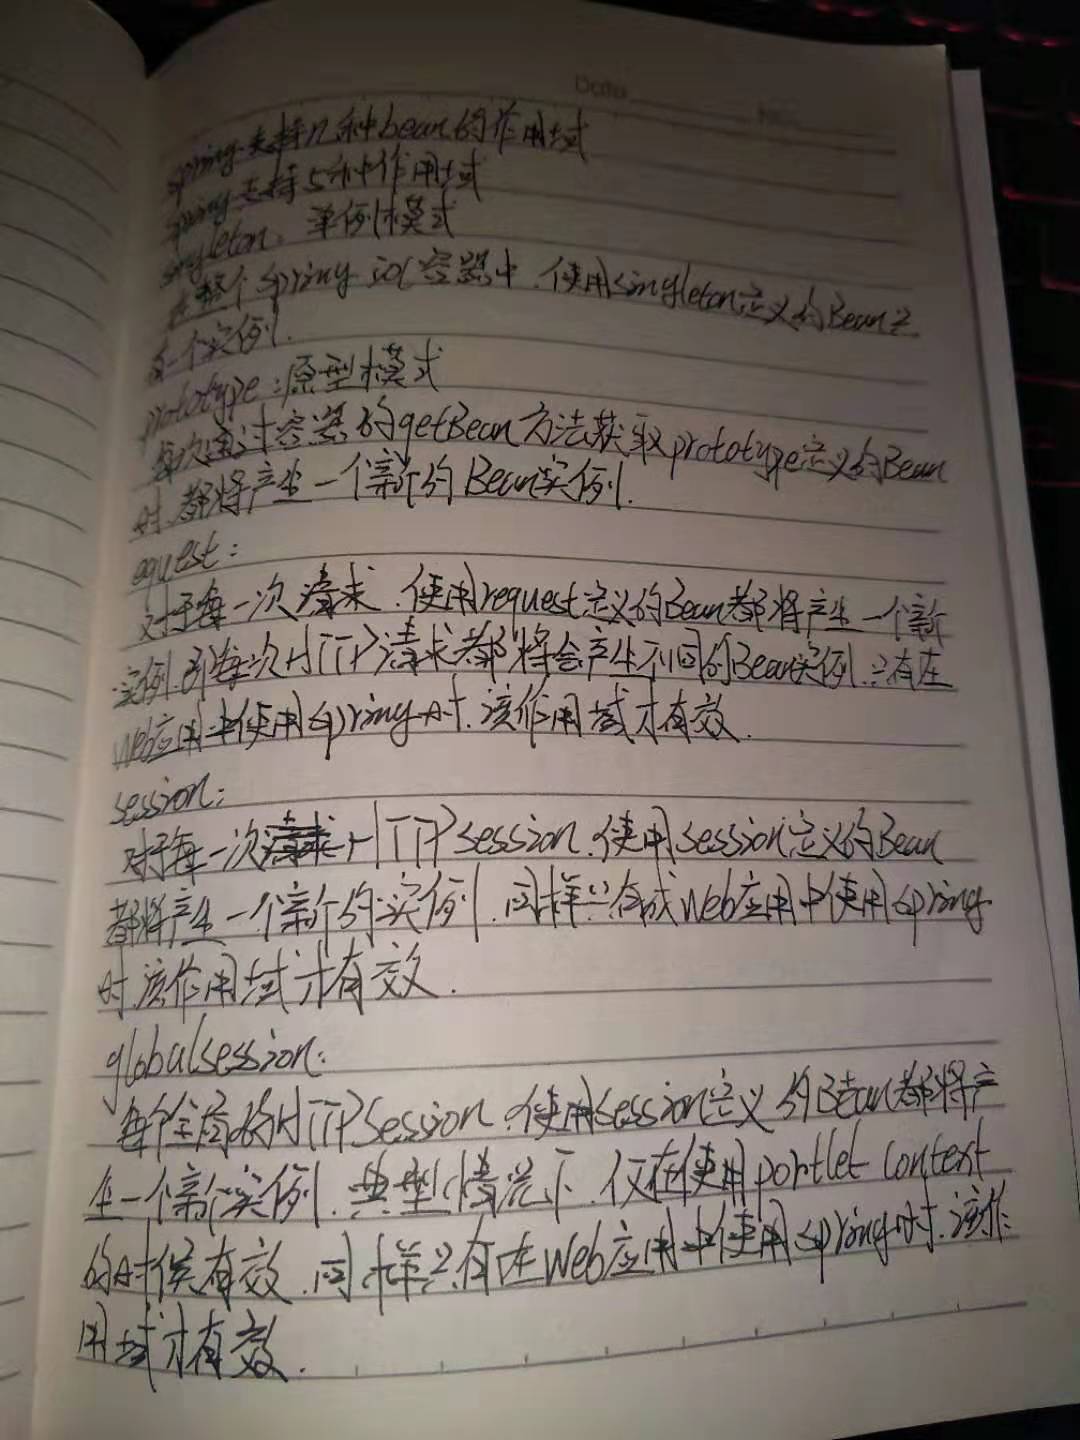 Date No.
spring支持几种bean的作用域
spring支持5种作用域
singleton: 单例模式
在整个spring ioc容器中,使用singleton定义的Bean只
有一个实例.
prototype:原型模式
每次通过容器的getBean方法获取prototype定义的Bean
时,都将产生一个新的Bean实例.
equest:
对于每一次请求,使用request定义的Bean都将产生一个新
实例.即每次HTTP请求都将会产生不同的Bean实例.只有在
Web应用中使用spring时,该作用域才有效.
session:
对于每一次HTTPsession,使用session定义的Bean
都将产生一个新的实例,同样只有在Web应用中使用spring
时,该作用域才有效.
globalsession:
每个全局的HTTPSession,使用session定义的Bean都将产
生一个新实例.典型情况下,仅在使用portlet context
的时候有效.同样只有在Web应用中使用spring时,该作
用域才有效.